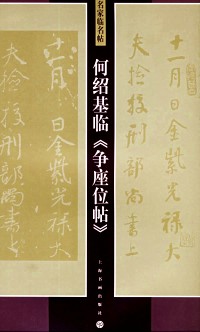 名家临名帖
何绍基临《争座位帖》
上海书画出版社
十一月日金紫光祿大
夫撿挍刑部尚書上
十一月日金紫光祿大
夫撿挍刑部尚書上